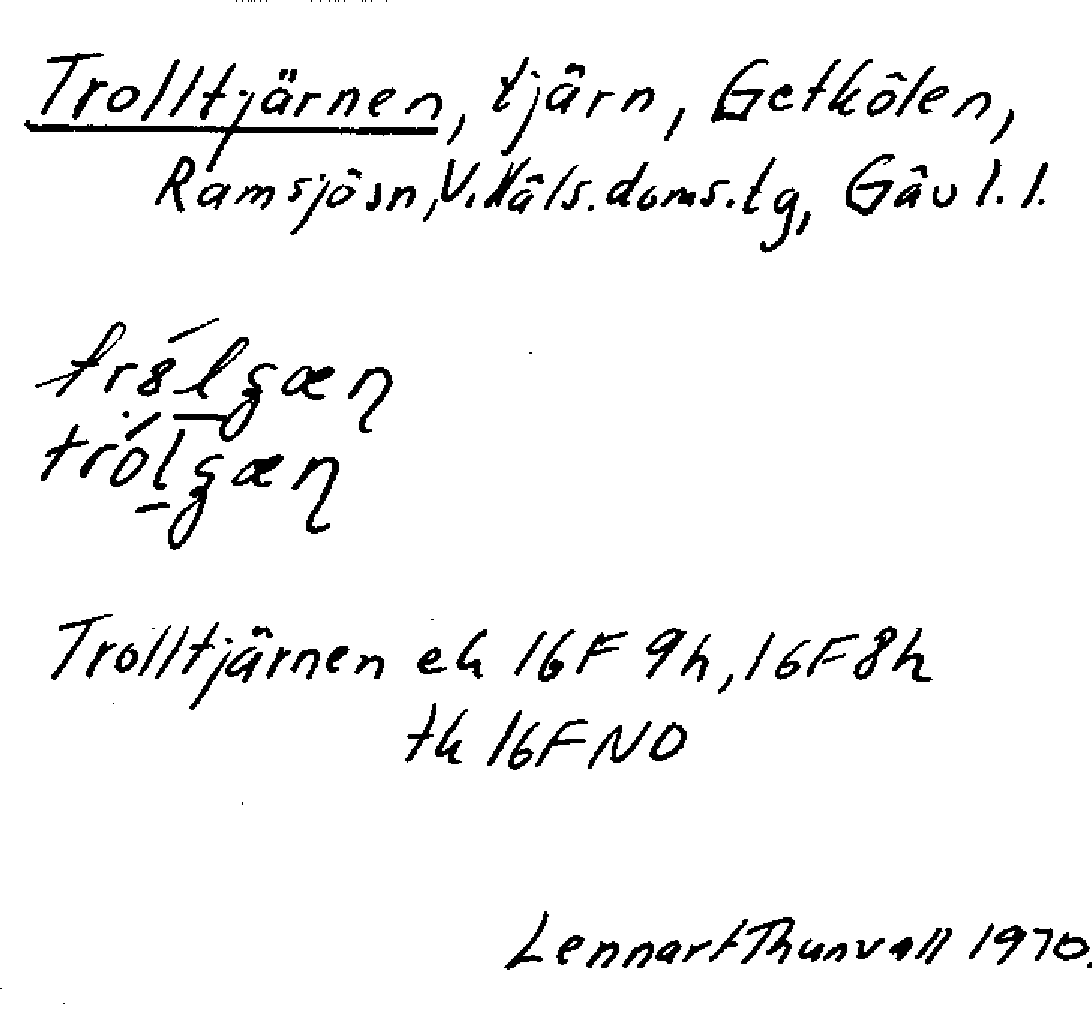 Trolltjärnen, tjärn, Getkölen,
Ramsjö sn, V. Häls. doms. tg, Gävl. l.
Trolltjärnen ek 16F 9h, 16F 8h
tk 16F NO
Lennart Thunvall 1970.